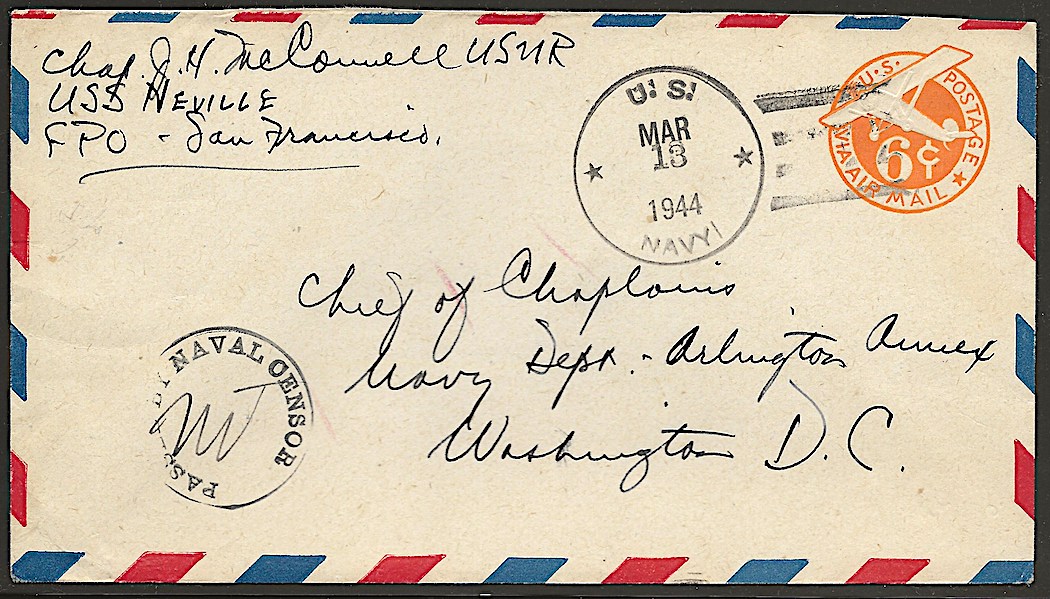 Chap. J. H. McConnell USNR
USS NEVILLE
FPO - San Francisco.
U. S.
MAR
13
1944
NAVY
U.S. POSTAGE
6¢
VIA AIR MAIL
Chief of Chaplains
Navy Dept. - Arlington Annex
Washington D. C.
PASSED BY NAVAL CENSOR